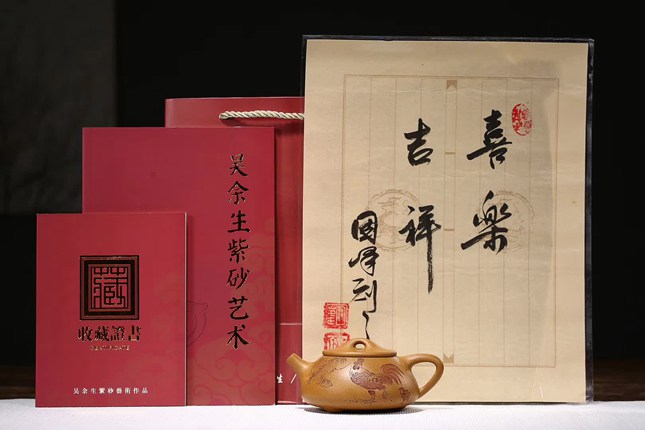 喜樂
吉祥
吴余生紫砂艺术
藏
收藏證書
吴余生紫砂藝術作品